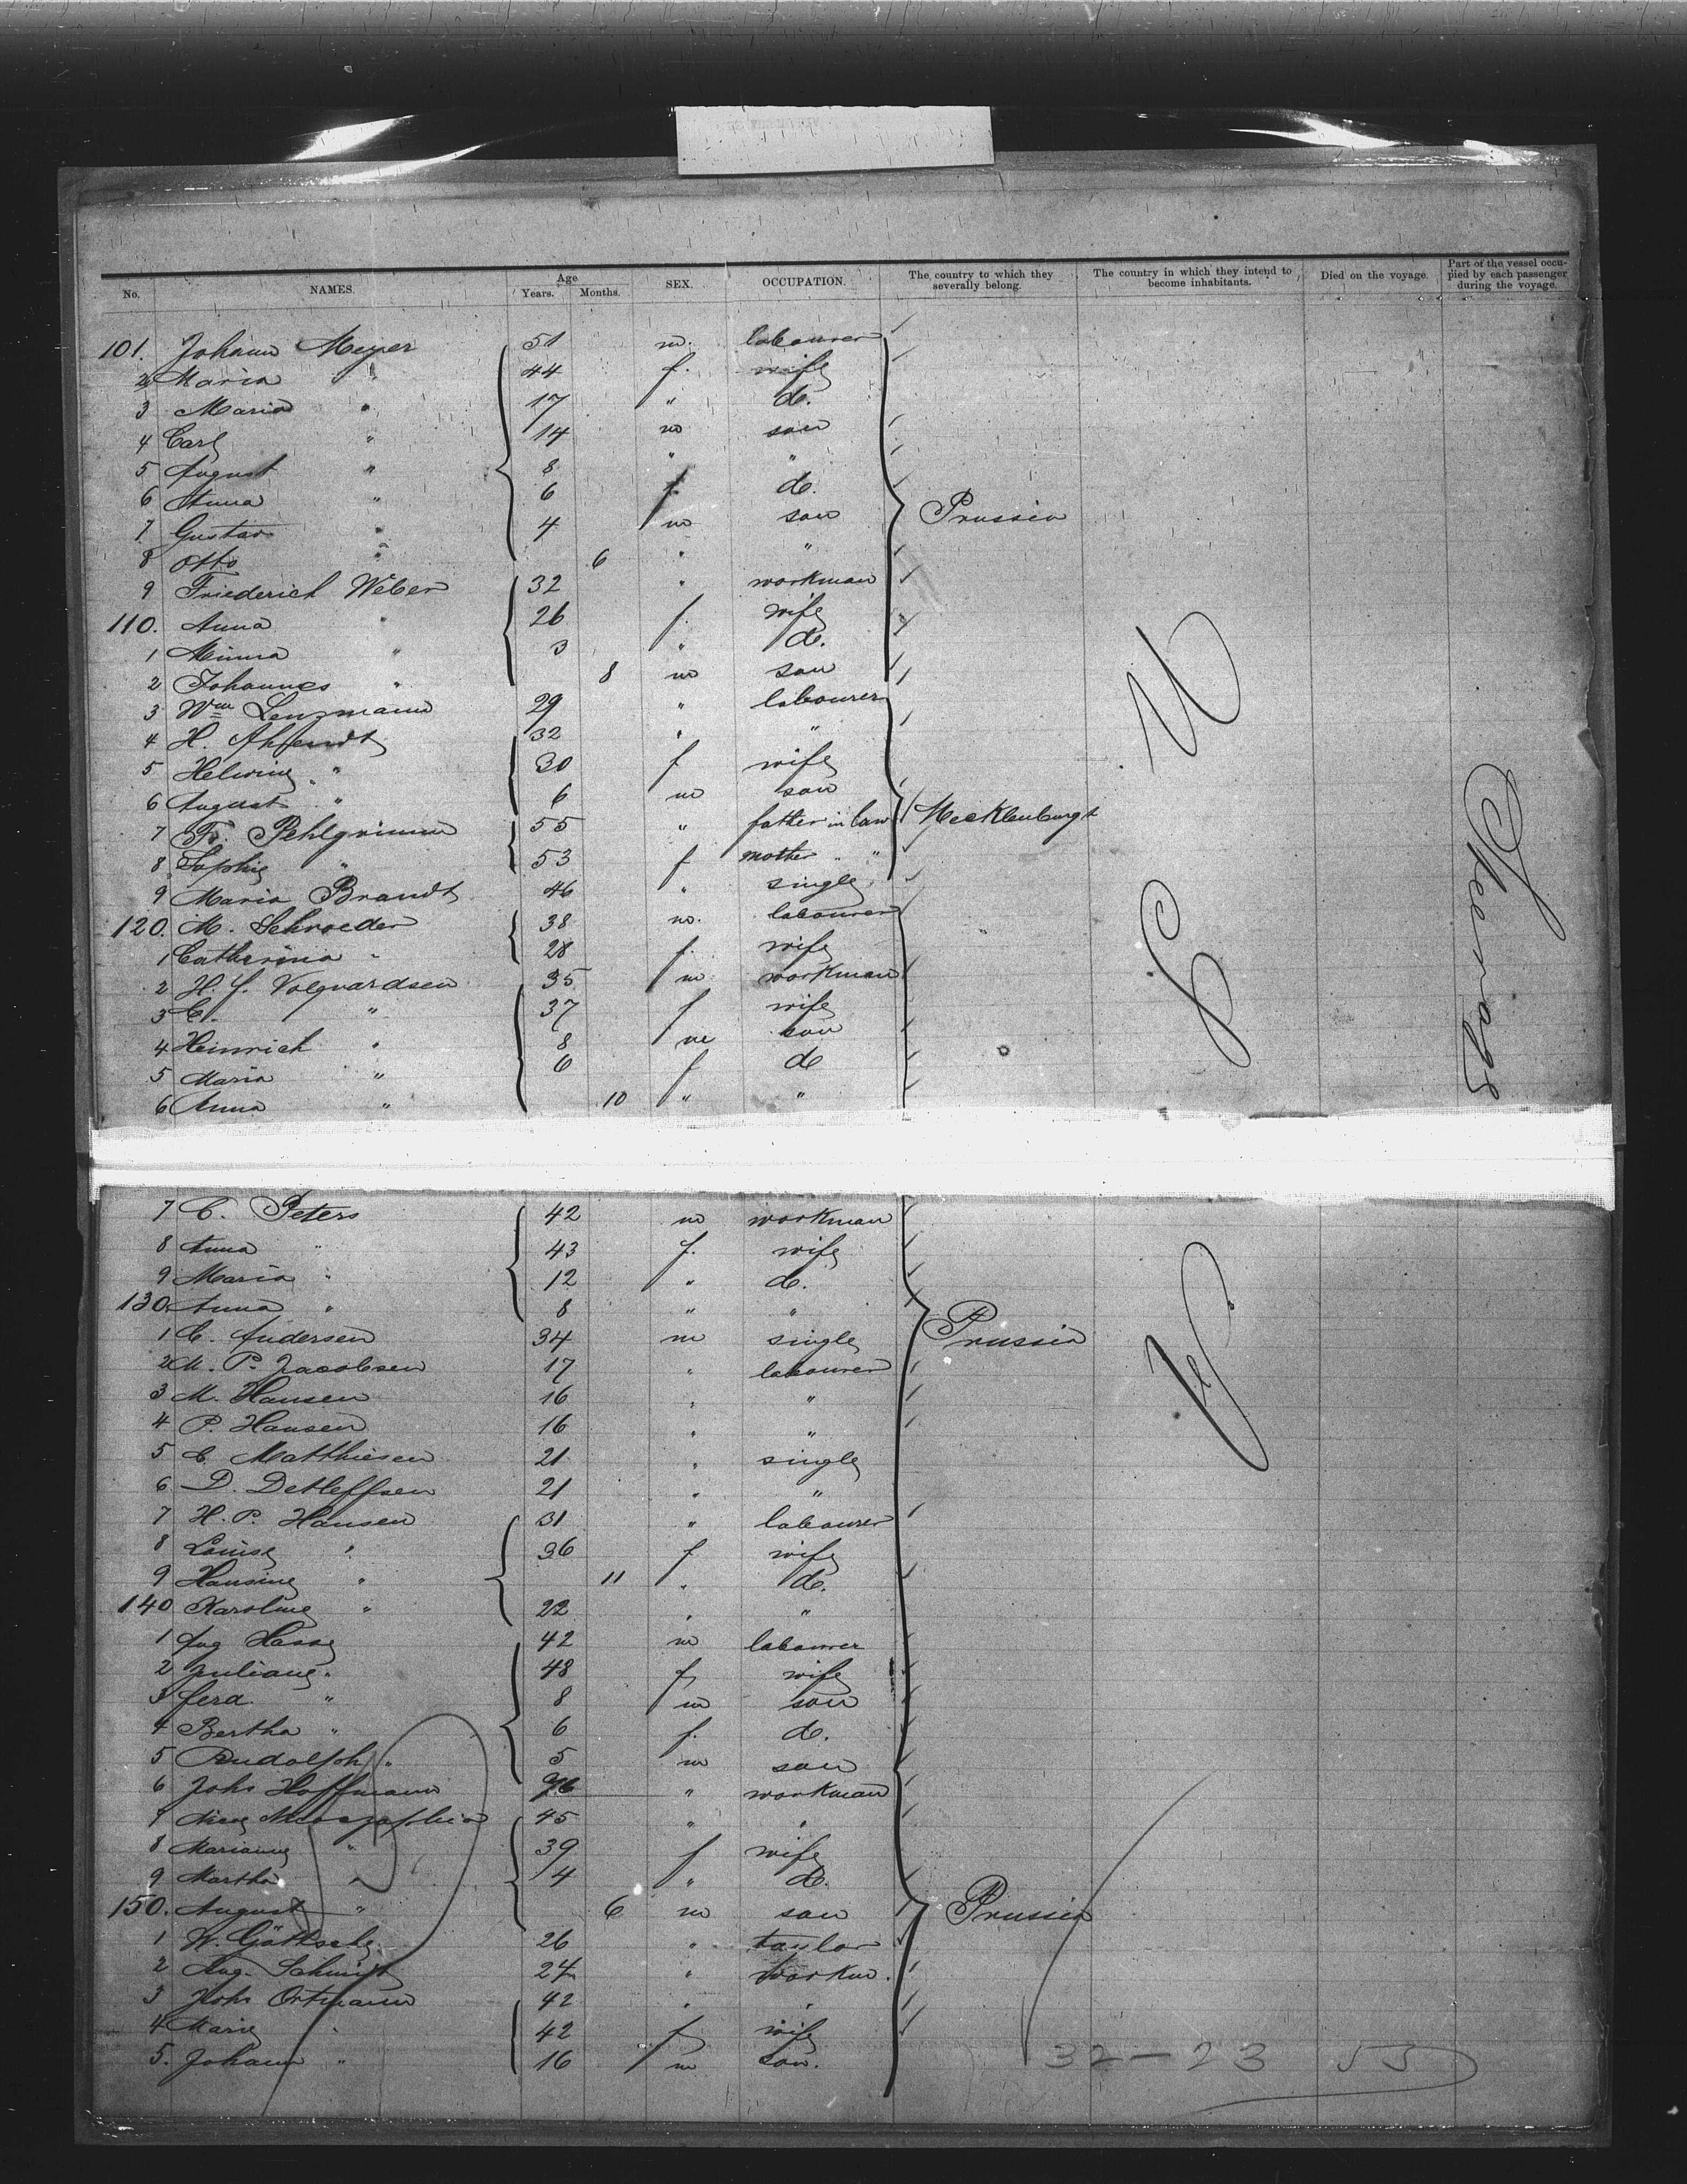 No. NAMES. Age Years. Months. SEX. OCCUPATION. The country to which they severally belong. The country in which they intend to become inhabitants. Died on the voyage. Part of the vessel occupied by each passenger during the voyage.
101. Johann Meyer 51 m. labourer
2 Maria " 44 f. wife
3 Maria " 17 " d.
4 Carl " 14 m son
5 August " 8 " "
6 Anna " 6 f. d.
7 Gustav " 4 m son Prussia
8 Otto " 6 " "
9 Friederich Weber 32 " workman
110. Anna " 26 f. wife
1 Minna " 3 " d.
2 Johannes " 8 m son
3 Wm Lenzmann 29 " labourer
4 H. 32 " "
5 Helwine " 30 f wife
6 August " 6 m son
7 Fr. Pehlgrimm 55 " father in law Mecklenburgh
8 Sophie " 53 f mother " "
9 Maria Brandt 46 " single
120. M. Schroeder 38 m. labourer
1 Catherina " 28 f. wife
2 H. J. Volquardsen 35 m workman
3 C. " 37 f wife
4 Heinrich " 8 m son
5 Maria " 6 f d
6 Anna " 10 " "
U S Steerage
7 C. Peters 42 m workman
8 Anna " 43 f. wife
9 Maria " 12 " d.
130. Anna " 8 " "
1 C. Andersen 34 m single Prussia
2 M. P. Jacobsen 17 " labourer
3 M. Hansen 16 " "
4 P. Hansen 16 " "
5 C. Matthiesen 21 " single
6 D. Detleffsen 21 " "
7 H. P. Hansen 31 " labourer
8 Louise " 36 f wife
9 Hansine " 11 " d.
140 Karoline " 22 " "
1 Aug Hesse 42 m labourer
2 Juliane " 48 f wife
3 Ferd. " 8 m son
4 Bertha " 6 f. d.
5 Rudolph " 5 m son
6 Johs Hoffmann " workman
7 45 " "
8 Marianne " 39 f wife
9 Martha " 4 " d.
150. August " 6 m son Prussia
1 W. Göttsche 26 " taylor
2 Aug. Schmidt 24 " workm.
3 Johs Ortmann 42 " "
4 Marie " 42 f wife
5. Johann " 16 m son.
32 - 23 55